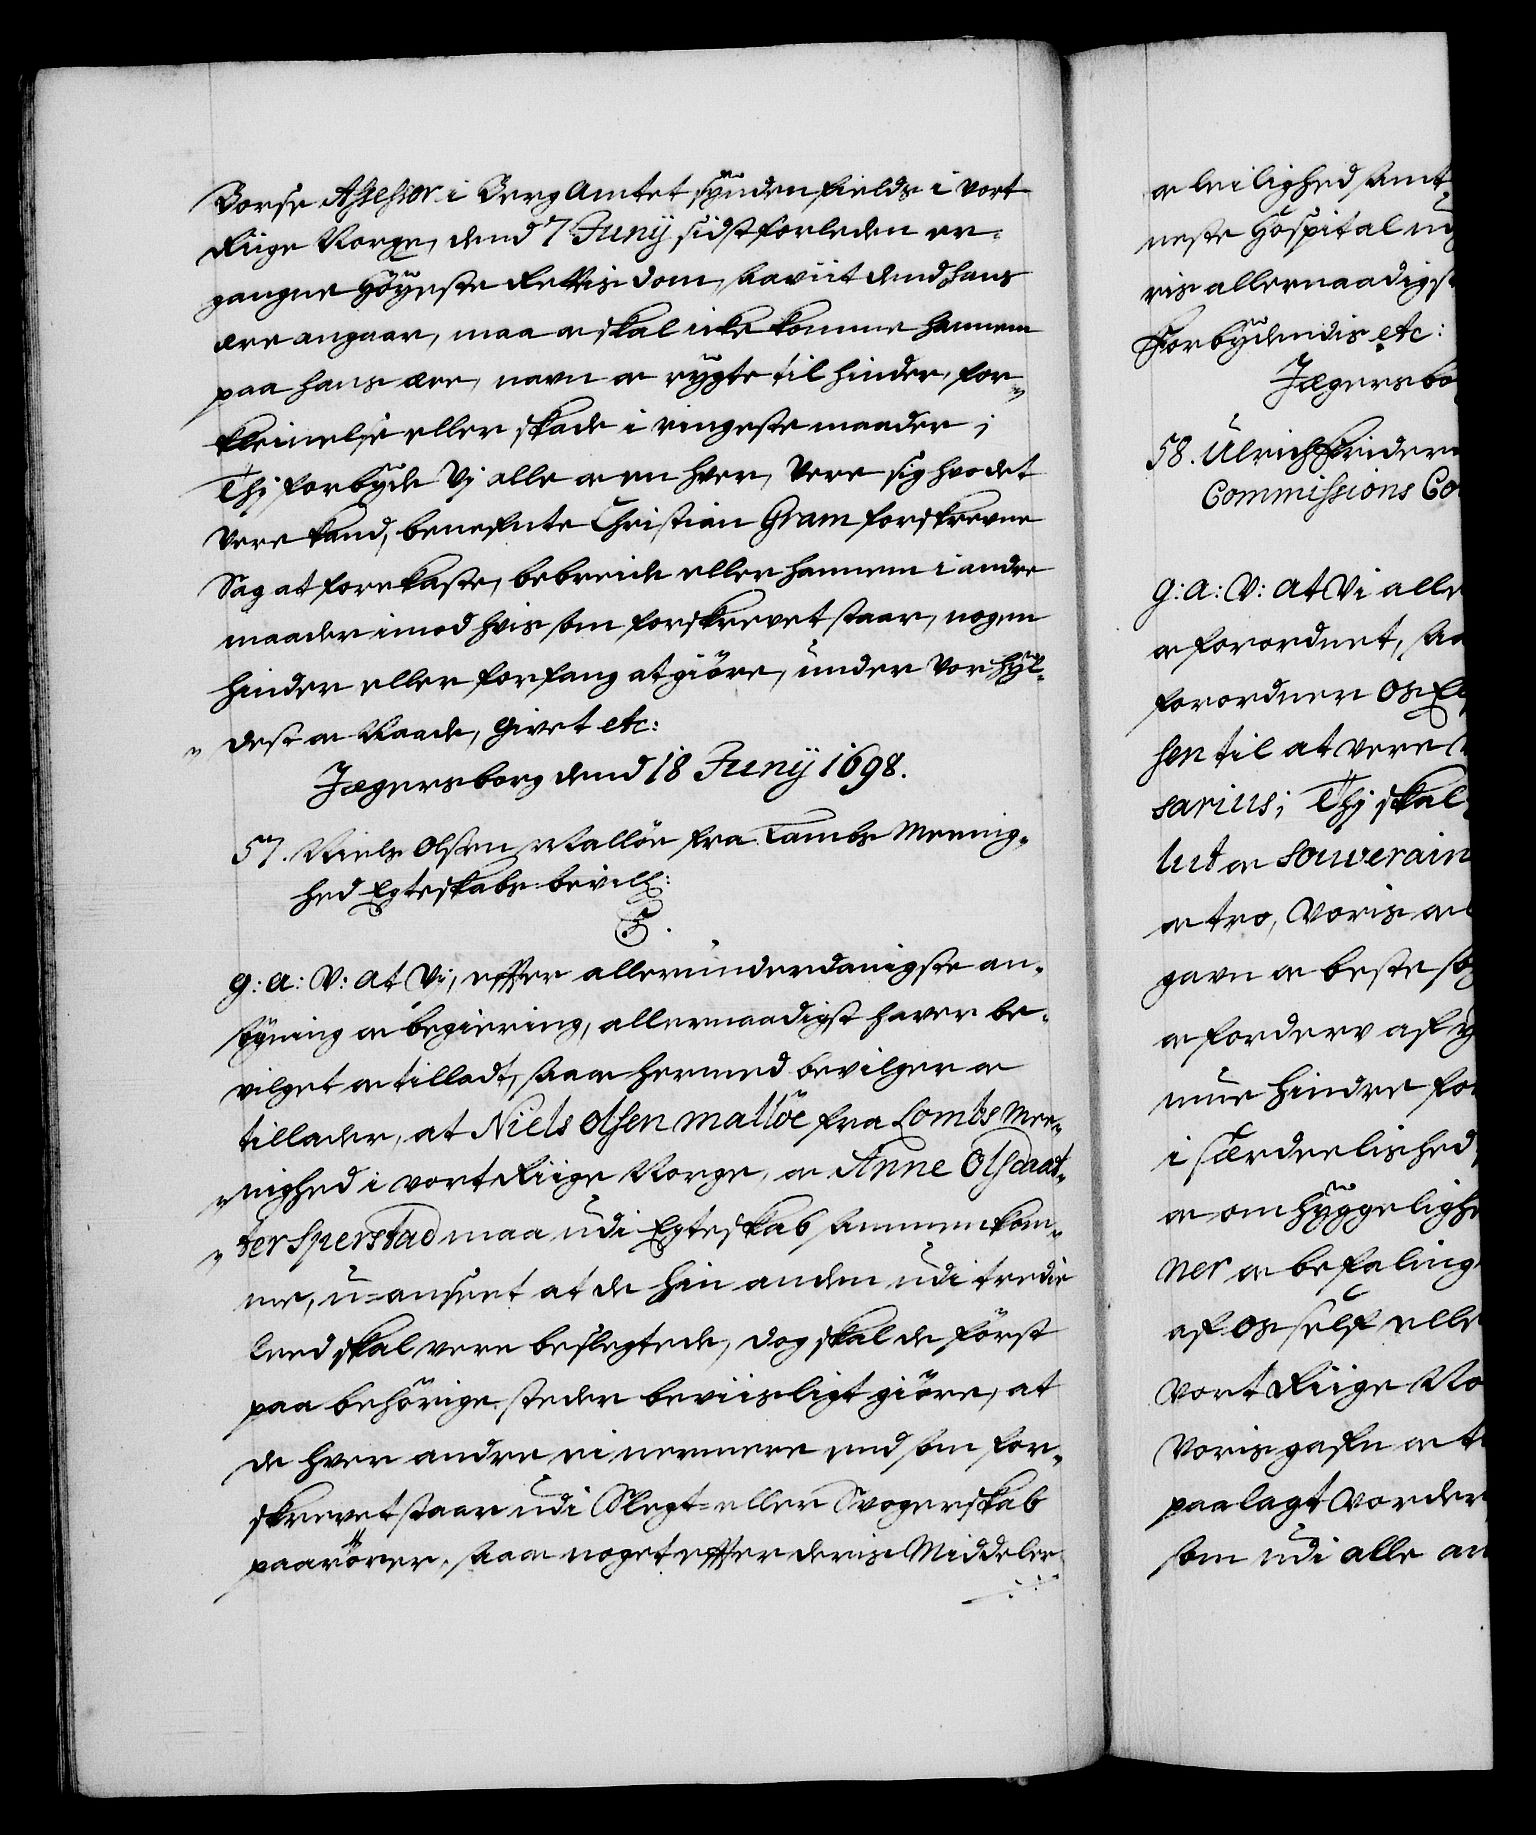 Vorse Assessor i Berg Amtet synden fields i vort
Riige Norge, dend 7 Junÿ sidstforleden er-
gangne Höÿeste Rettis dom, saaviit dend hans
ære angaar, maa og skal icke komme hannem
paa hans ære, navn og rÿgte til hinder, for-
kleinelse eller skade i ringeste maader;
Thj forbÿde Vj alle og en hver, Være sig hvo det
Være kand, benefnte Christian Gram forskrevne
Sag at forekaste, bebreide eller hannem i andre
maader imod hvis som forskrevet staar, nogen
hinder eller forfang at giöre, under Vor Hÿl-
dest og Naade, Givet etc:
Jægersborg dend 18 Junÿ 1698.
57. Niels Olsen Mallöe fra Lambs Meenig-
hed Egteskabs bevill:
G: A: V: At Vi, effter allerunderdanigste an-
sÿgning og begiering, allernaadigst haver be-
vilget og tilladt, saa og hermed bevilger og
tillader, at Niels Olsen mallöe fra Lombs Mee-
nighed i vort Riige Norge, og Anne Olsdaat-
ter Sperstad maa udi Egteskab sammenkom-
me, u-anseet at de hin anden udi tredie
Leed skal være beslegtede, dog skal de först
paa behörige steder beviisligt giöre, at
de hver andre ei nermere end som for-
skrevet staar udi Slegt- eller Svogerskab
paarörer, saa og noget effter deris Middeler
og leilighed
neste Hospital
ris allernaadigst
Forbÿdendis etc:
Jægersbo
58. Ulrich Frider
Commissions Co
G: A: V: At Vi alle
og forordnet, saa
forordner os El
sen til at være
sarius; Thj skal
lut og Souverain
og tro, Voris og
gavn og beste
og forderv af
mue hindre for
i særdeelished,
og omhÿggelighe
ner og befaling
af os self elle
Vort Riige No
Voris gafn og
paalagt vorder
som udi alle an